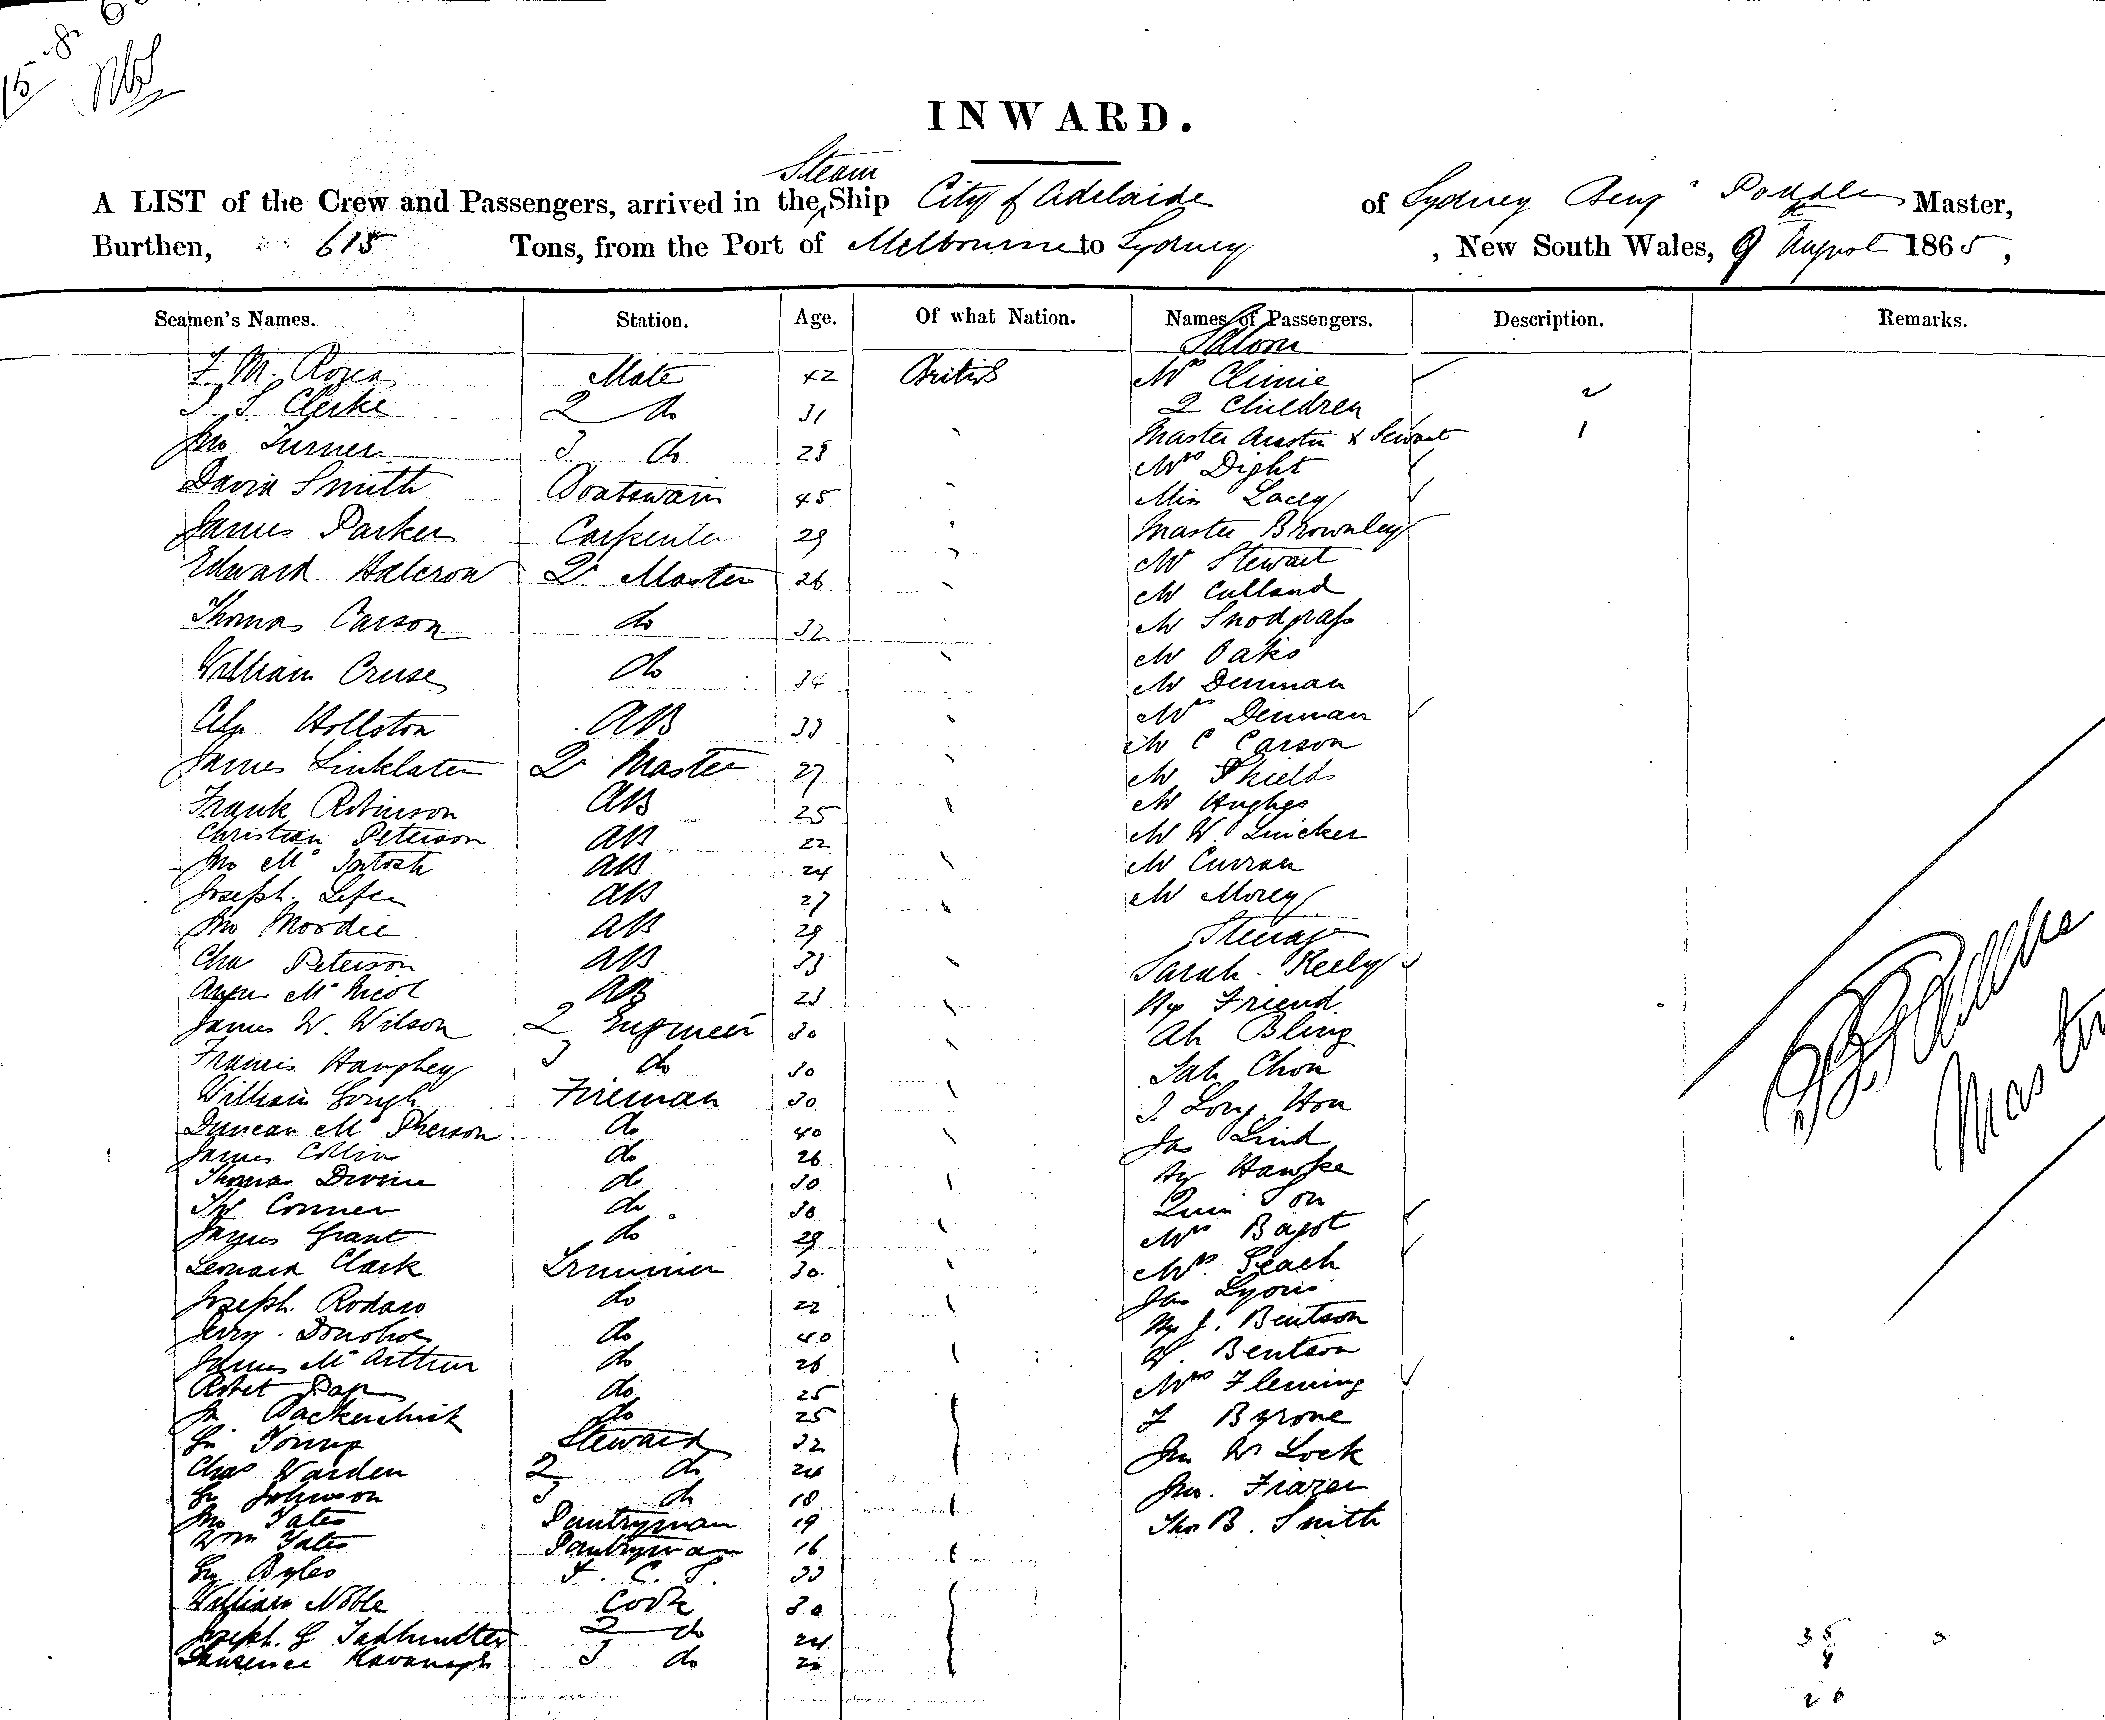 15
INWARD.
Steam
A LIST of the Crew and Passengers, arrived in the Ship City of Adelaide of Sydney Benj Master,
Burthen, 615 Tons, from the Port of Melbourne to Sydney, New South Wales, 9 August 1865,
Seamen's Names. Station. Age. Of what Nation. Names of Passengers. Description. Remarks.
Saloon
Mate 42 British Mrs Climie
Clerke 2 do 31 2 Children
Jno Turner 3 do 28 Master Austin & Servant 1
Mrs Dight
David Smith Boatswain 45 Miss Lacey
James Parker Carpenter 29 Master Brownley
Mr Stewart
Edward Halcrow Qr Master 26 Mr Culland
Thomas Carson do 32 Mr Snodgrass
Mr Oaks
William Cruse do 34 Mr Denman
Mrs Denman
Alex Hollston AB 33 Mr C Carson
James Linklater Qr Master 27 Mr Shields
Frank Robinson AB 25 Mr Hughes
Christian Peterson AB 22 Mr W.
Jno McIntosh AB 24 Mr Curran
Joseph AB 27 Mr Morey
Jno Moodie AB 29 Steerage
Chas Peterson AB 33 Sarah Keely
Angus McNicol AB 23 Hy Friend
James W. Wilson 2 Engineer 30 Ah Bling
Francis Hamphey 3 do 30 Chon
William Gough Fireman 30 Long Hon
Duncan McPherson do 40 Jas Lind
James Collins do 26 Hy Hawke
Thomas Devine do 30 Quin
Thos Conner do 30 Mrs Bagot
James Grant do 29 Mrs Leach
Leonard Clark Trimmer 30 Jas Lyons
Joseph Rodaro do 22 Hy J. Bentson
Jerry Donohoe do 40 W. Bentson
James McArthur do 26 Mrs Fleming
Robet do 25
do 25 F Byrone
Geo Young Steward 32 Jno W Lock
Chas Warden 2 do 24
Geo Johnson 3 do 18 Jno. Frazer
Jno Yates Pantryman 19 Thos B. Smith
Wm Yates Pantryman 16
Geo Byles F. C. S. 33
William Noble Cook 30
Joseph G 2 do 24 35 3
Kavanagh 3 do 8
Master